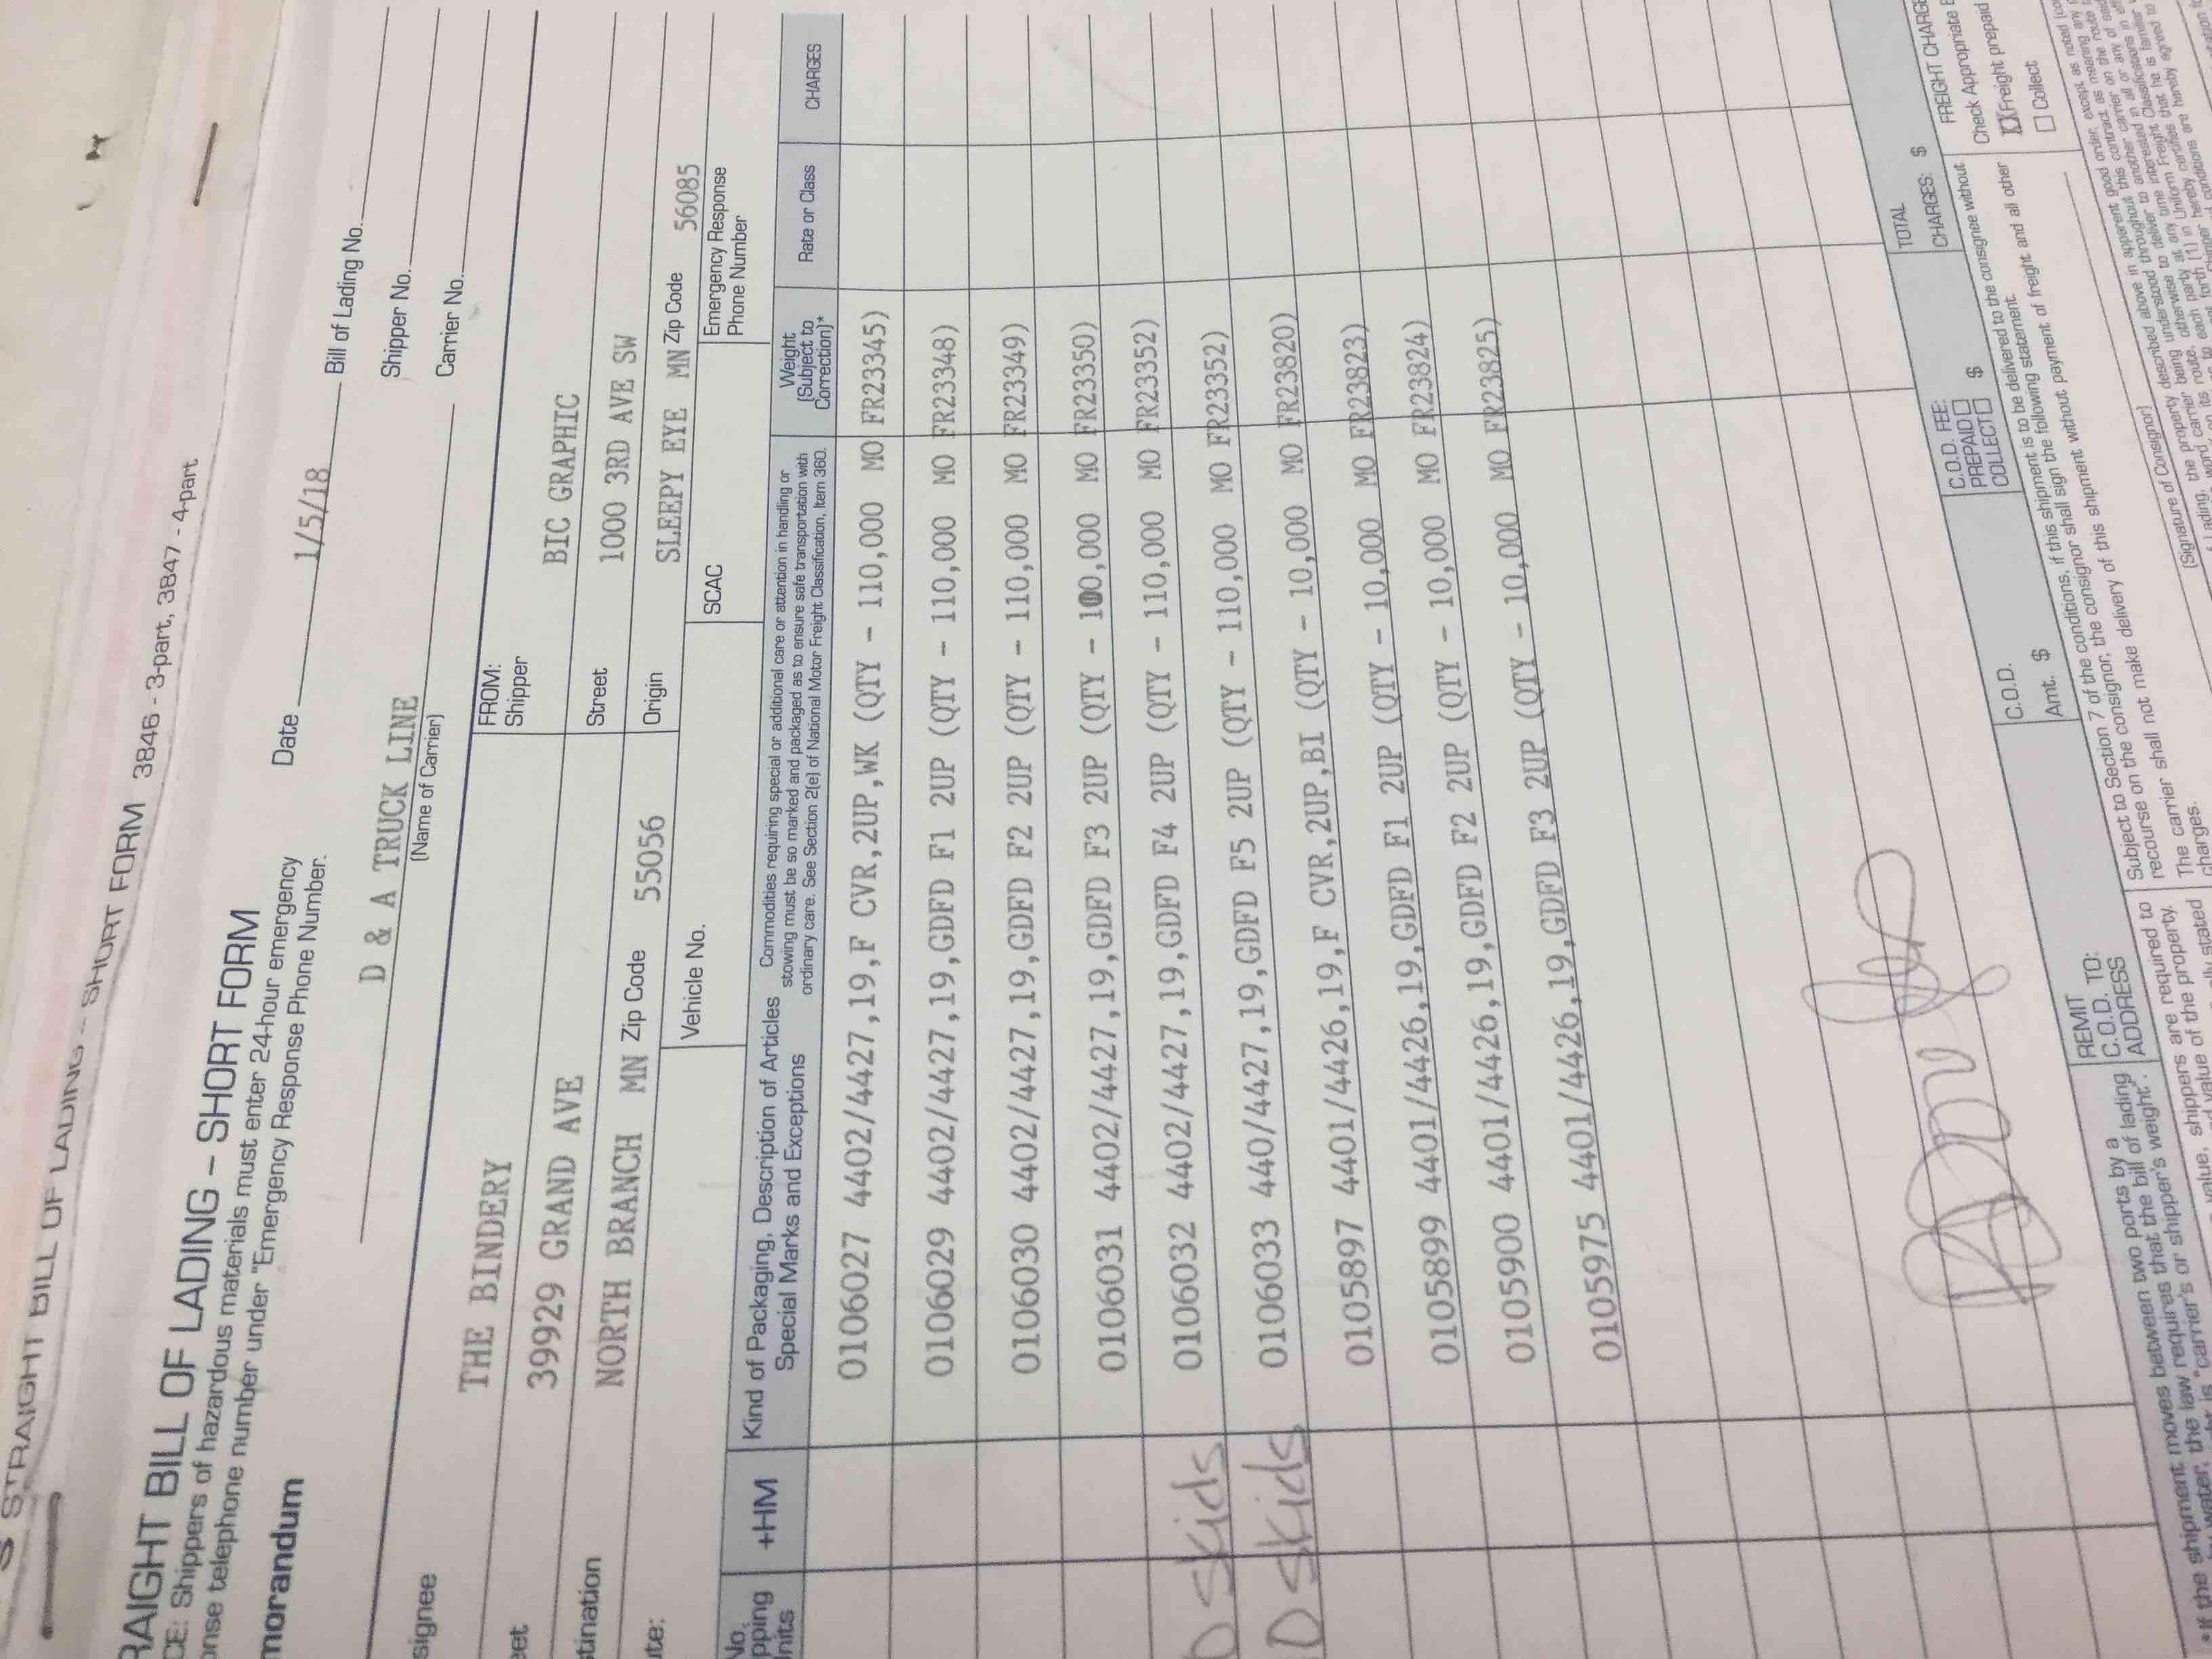 STRAIGHT BILL OF LADING – SHORT FORM
SHORT FORM 3846 - 3-part, 3847 - 4-part
RAIGHT BILL OF LADING – SHORT FORM
CE: Shippers of hazardous materials must enter 24-hour emergency
onse telephone number under "Emergency Response Phone Number.
morandum
Date 1/5/18
Bill of Lading No.
Shipper No.
Carrier No.
D & A TRUCK LINE
(Name of Carrier)
signee
THE BINDERY
FROM:
Shipper
BIC GRAPHIC
eet
39929 GRAND AVE
Street 1000 3RD AVE SW
stination
NORTH BRANCH MN Zip Code 55056
Origin SLEEPY EYE MN Zip Code 56085
ute:
Vehicle No.
SCAC
Emergency Response
Phone Number
No.
pping
nits
+HM
Kind of Packaging, Description of Articles
Special Marks and Exceptions
Commodities requiring special or additional care or attention in handling or
stowing must be so marked and packaged as to ensure safe transportation with
ordinary care. See Section 2(e) of National Motor Freight Classification, Item 360.
Weight
(Subject to
Correction)*
Rate or Class
CHARGES
O106027 4402/4427,19,F CVR,2UP,WK (QTY - 110,000 MO FR23345)
O106029 4402/4427,19,GDFD F1 2UP (QTY - 110,000 MO FR23348)
O106030 4402/4427,19,GDFD F2 2UP (QTY - 110,000 MO FR23349)
O106031 4402/4427,19,GDFD F3 2UP (QTY - 100,000 MO FR23350)
O106032 4402/4427,19,GDFD F4 2UP (QTY - 110,000 MO FR23352)
skids
O106033 440/4427,19,GDFD F5 2UP (QTY - 110,000 MO FR23352)
skids
O105897 4401/4426,19,F CVR,2UP,BI (QTY - 10,000 MO FR23820)
O105899 4401/4426,19,GDFD F1 2UP (QTY - 10,000 MO FR23823)
O105900 4401/4426,19,GDFD F2 2UP (QTY - 10,000 MO FR23824)
O105975 4401/4426,19,GDFD F3 2UP (QTY - 10,000 MO FR23825)
REMIT
C.O.D. TO:
ADDRESS
C.O.D.
Amt. $
C.O.D. FEE:
PREPAID
COLLECT $
TOTAL
CHARGES: $
If the shipment moves between two ports by a
water, the law requires that the bill of lading
is "carrier's or shipper's weight".
value, shippers are required to
value of the property.
Subject to Section 7 of the conditions, if this shipment is to be delivered to the consignee without
recourse on the consignor, the consignor shall sign the following statement.
The carrier shall not make delivery of this shipment without payment of freight and all other
charges.
(Signature of Consignor)
FREIGHT CHARGE
Check Appropriate
Freight prepaid
Collect